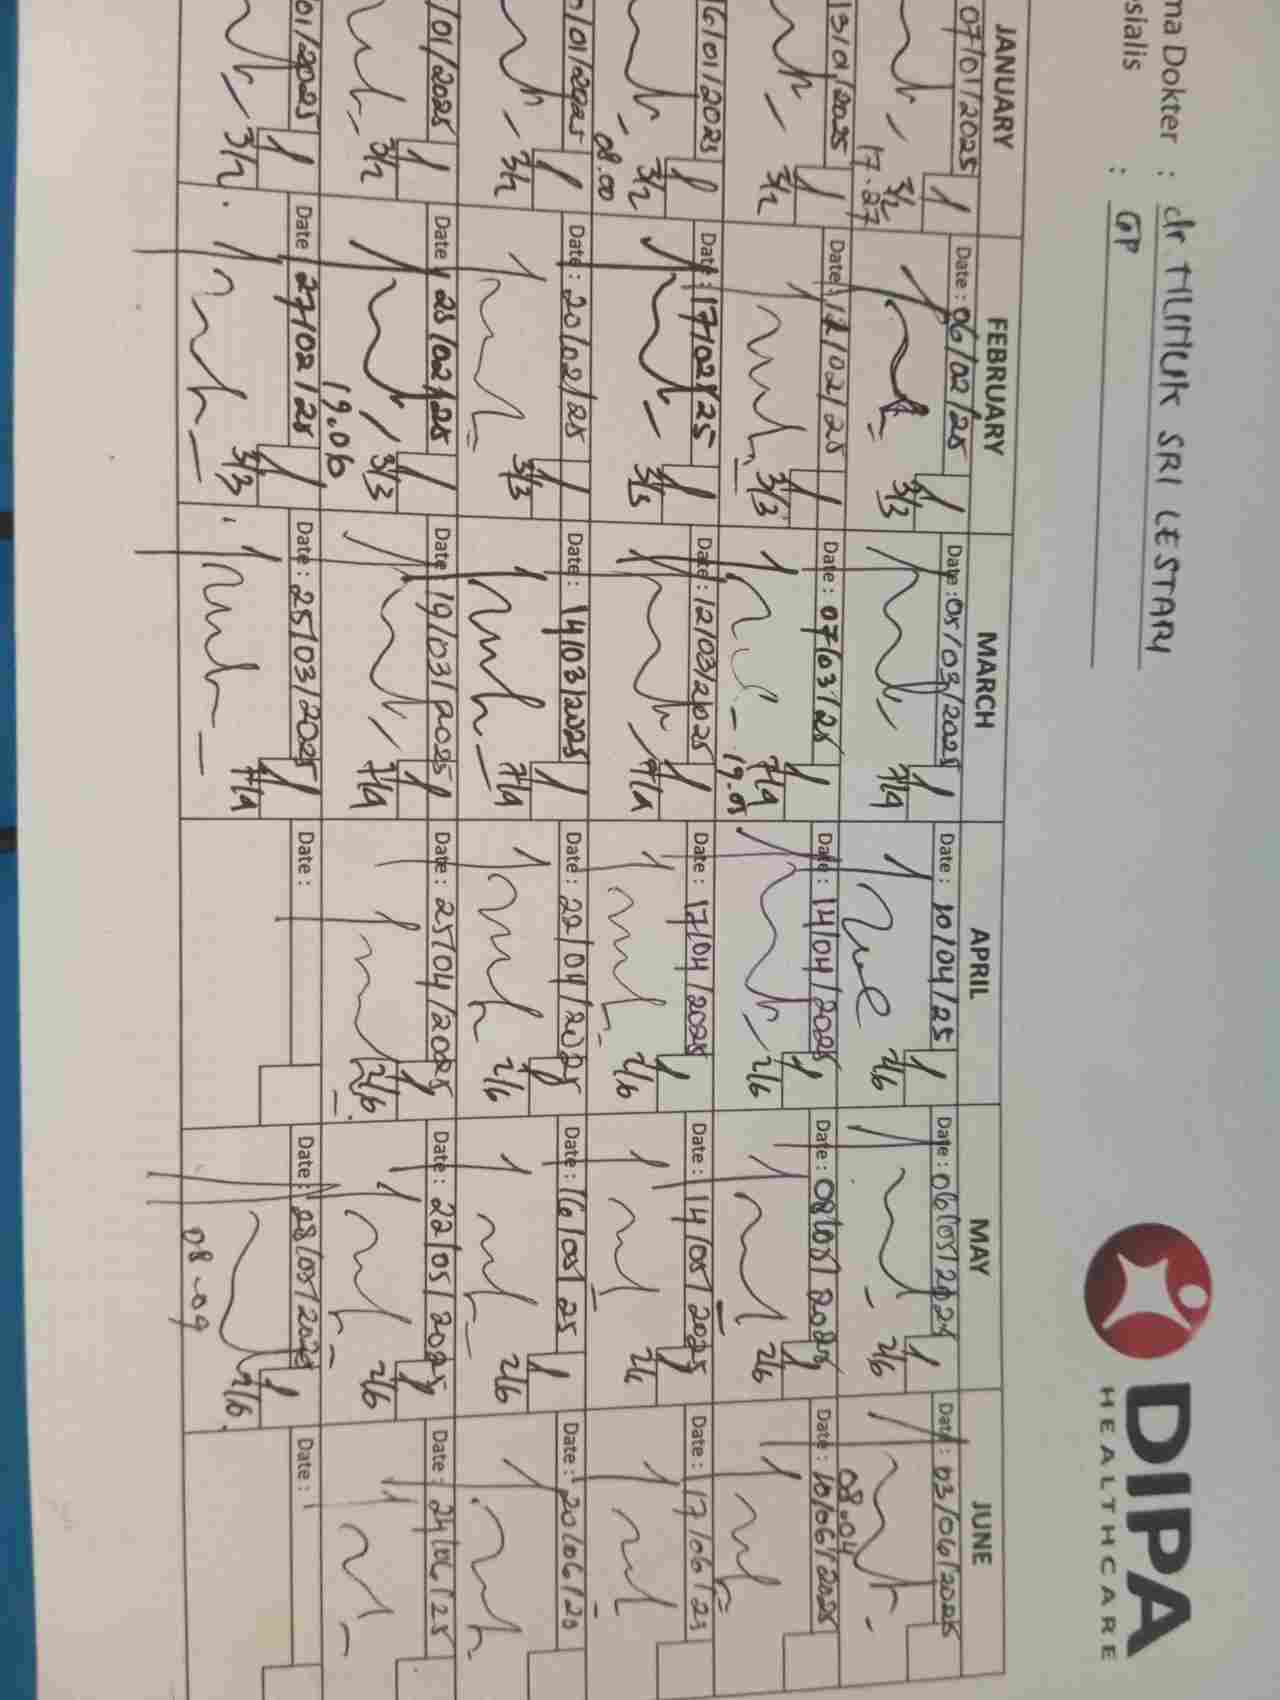 ma Dokter : dr. SRI LESTARI
sialis : GP
DIPA
HEALTHCARE
JANUARY FEBRUARY MARCH APRIL MAY JUNE
07/01/2025 Date : 06/02/25 Date : 05/03/2025 Date : 10/04/25 Date : 06/05/2025 Date : 03/06/2025
17.27 3/2 3/3 7/4 2/6 2/6 08.04
13/01/2025 Date : 12/02/25 Date : 07/03/25 Date : 14/04/2025 Date : 08/05/2025 Date : 10/06/2025
3/2 3/3 7/4 19.05 2/6 2/6
6/01/2025 Date : 17/02/25 Date : 12/03/2025 Date : 17/04/2025 Date : 14/05/2025 Date : 17/06/25
08.00 3/2 3/3 7/4 2/6 2/6
/01/2025 Date : 20/02/25 Date : 14/03/2025 Date : 22/04/2025 Date : 16/05/25 Date : 20/06/20
3/2 3/3 7/4 2/6 2/6
/01/2025 Date : 25/02/25 Date : 19/03/2025 Date : 25/04/2025 Date : 22/05/2025 Date : 24/06/25
3/2 19.06 3/3 7/4 2/6 2/6
01/2025 Date : 27/02/25 Date : 25/03/2025 Date : Date : 28/05/2025 Date :
3/2 3/3 7/4 08.09 2/6